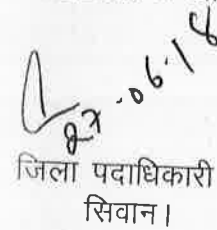 27.06.18
जिला पदाधिकारी
सिवान।